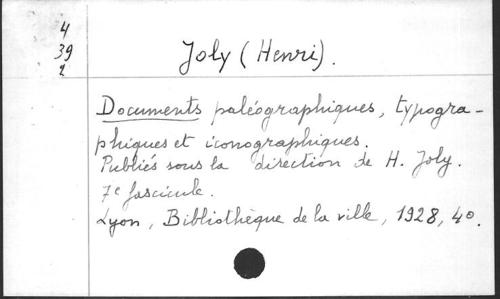 4
39
2
Joly (Henri).
Documents paléographiques, typogra-
phiques et iconographiques.
Publiés sous la direction de H. Joly.
7e fascicule.
Lyon, Bibliothèque de la ville, 1928, 4o.